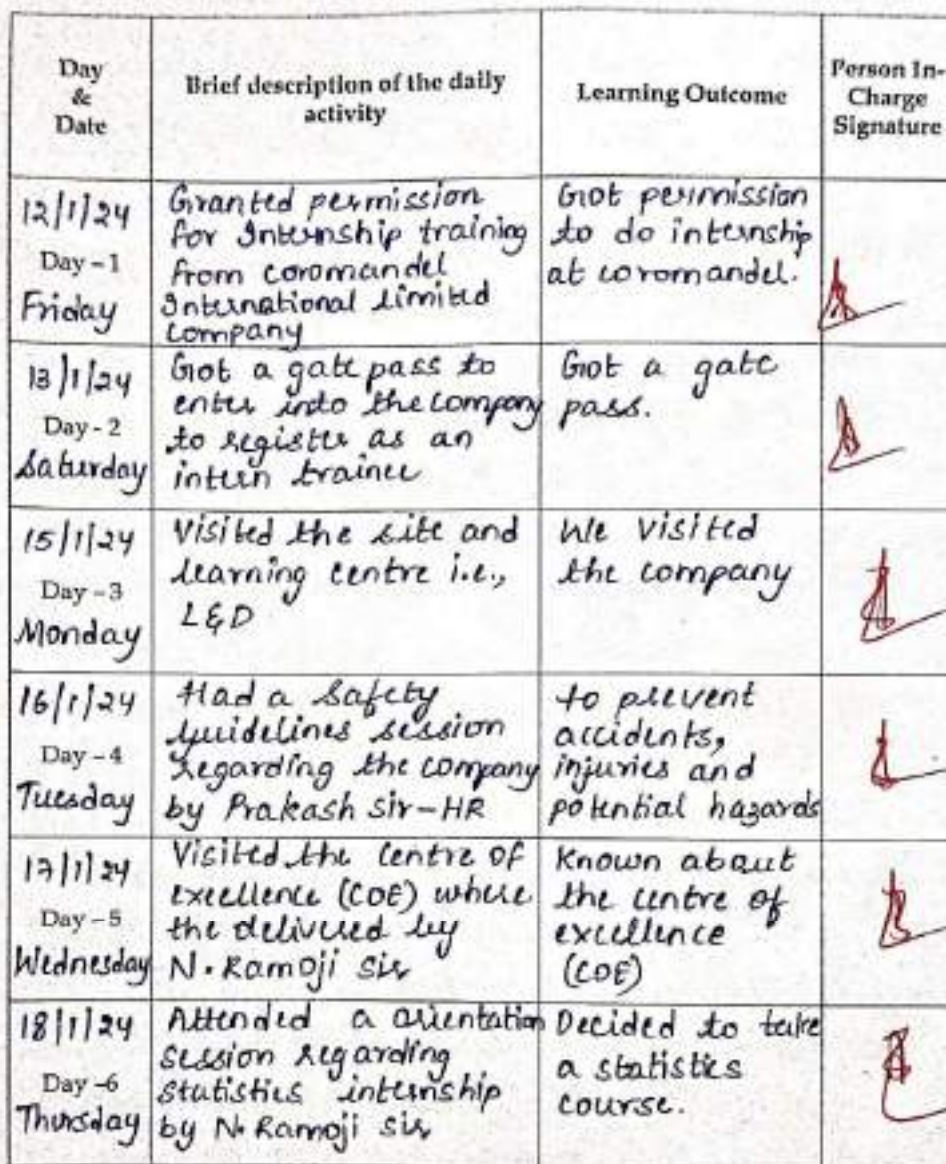 Day
&
Date
Brief description of the daily
activity
Learning Outcome
Person In-
Charge
Signature
12/1/24
Day - 1
Friday
Granted permission
for Internship training
from coromandel
International limited
company
Got permission
to do internship
at coromandel.
13/1/24
Day - 2
Saturday
Got a gate pass to
enter into the company
to register as an
intern trainee
Got a gate
pass.
15/1/24
Day - 3
Monday
Visited the site and
learning centre i.e.,
L&D
We visited
the company
16/1/24
Day - 4
Tuesday
Had a Safety
guidelines session
regarding the company
by Prakash Sir-HR
to prevent
accidents,
injuries and
potential hazards
17/1/24
Day - 5
Wednesday
Visited the centre of
excellence (COE) where
the delivered by
N. Ramoji Sir
Known about
the centre of
excellence
(COE)
18/1/24
Day - 6
Thursday
Attended a orientation
session regarding
statistics internship
by N. Ramoji Sir
Decided to take
a statistics
course.